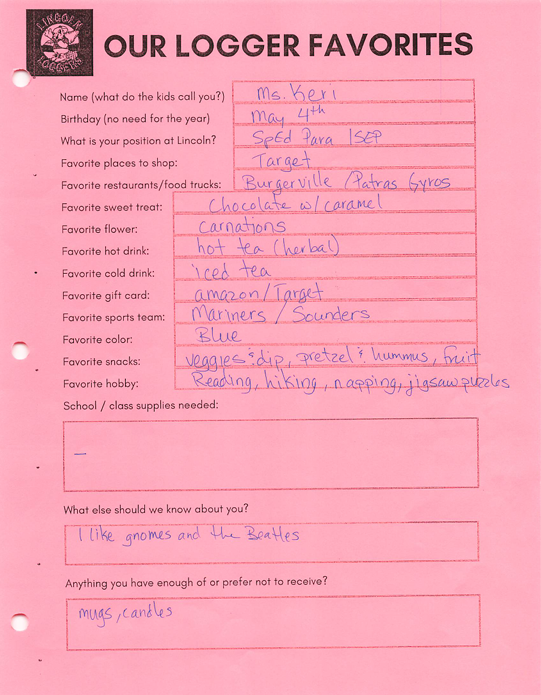 LINCOLN
LOGGERS
OUR LOGGER FAVORITES
Name (what do the kids call you?) Ms. Keri
Birthday (no need for the year) May 4th
What is your position at Lincoln? SpEd Para ISEP
Favorite places to shop: Target
Favorite restaurants/food trucks: Burgerville / Patras Gyros
Favorite sweet treat: Chocolate w/ caramel
Favorite flower: Carnations
Favorite hot drink: hot tea (herbal)
Favorite cold drink: iced tea
Favorite gift card: amazon / Target
Favorite sports team: Mariners / Sounders
Favorite color: Blue
Favorite snacks: veggies & dip, pretzel & hummus, fruit
Favorite hobby: Reading, hiking, napping, jigsaw puzzles
School / class supplies needed:
—
What else should we know about you?
I like gnomes and the Beatles
Anything you have enough of or prefer not to receive?
mugs, candles